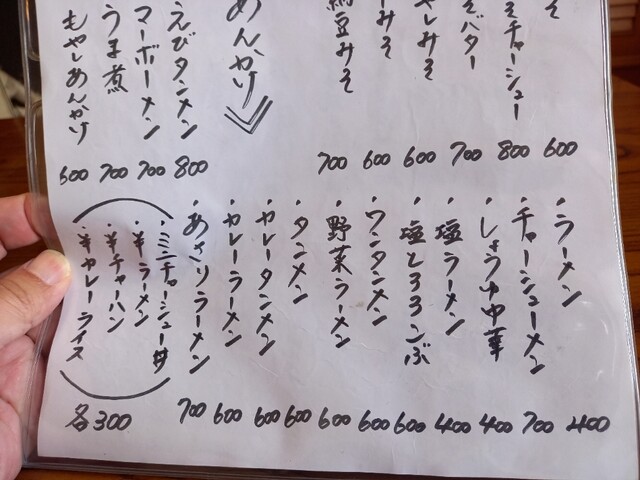 そ 600
そチャーシュー 800
そバター 700
やしみそ 600
ーみそ 600
納豆みそ 700
あんかけ
えびタンメン 800
マーボーメン 700
うま煮 700
もやしあんかけ 600
・ラーメン 400
・チャーシューメン 700
・しょうゆ中華 400
・塩ラーメン 400
・塩とろろこぶ 600
・ワンタンメン 600
・野菜ラーメン 600
・タンメン 600
・カレータンメン 600
・カレーラーメン 600
・あさりラーメン 700
・ミニチャーシュー丼
・半ラーメン
・半チャーハン
・半カレーライス
各300